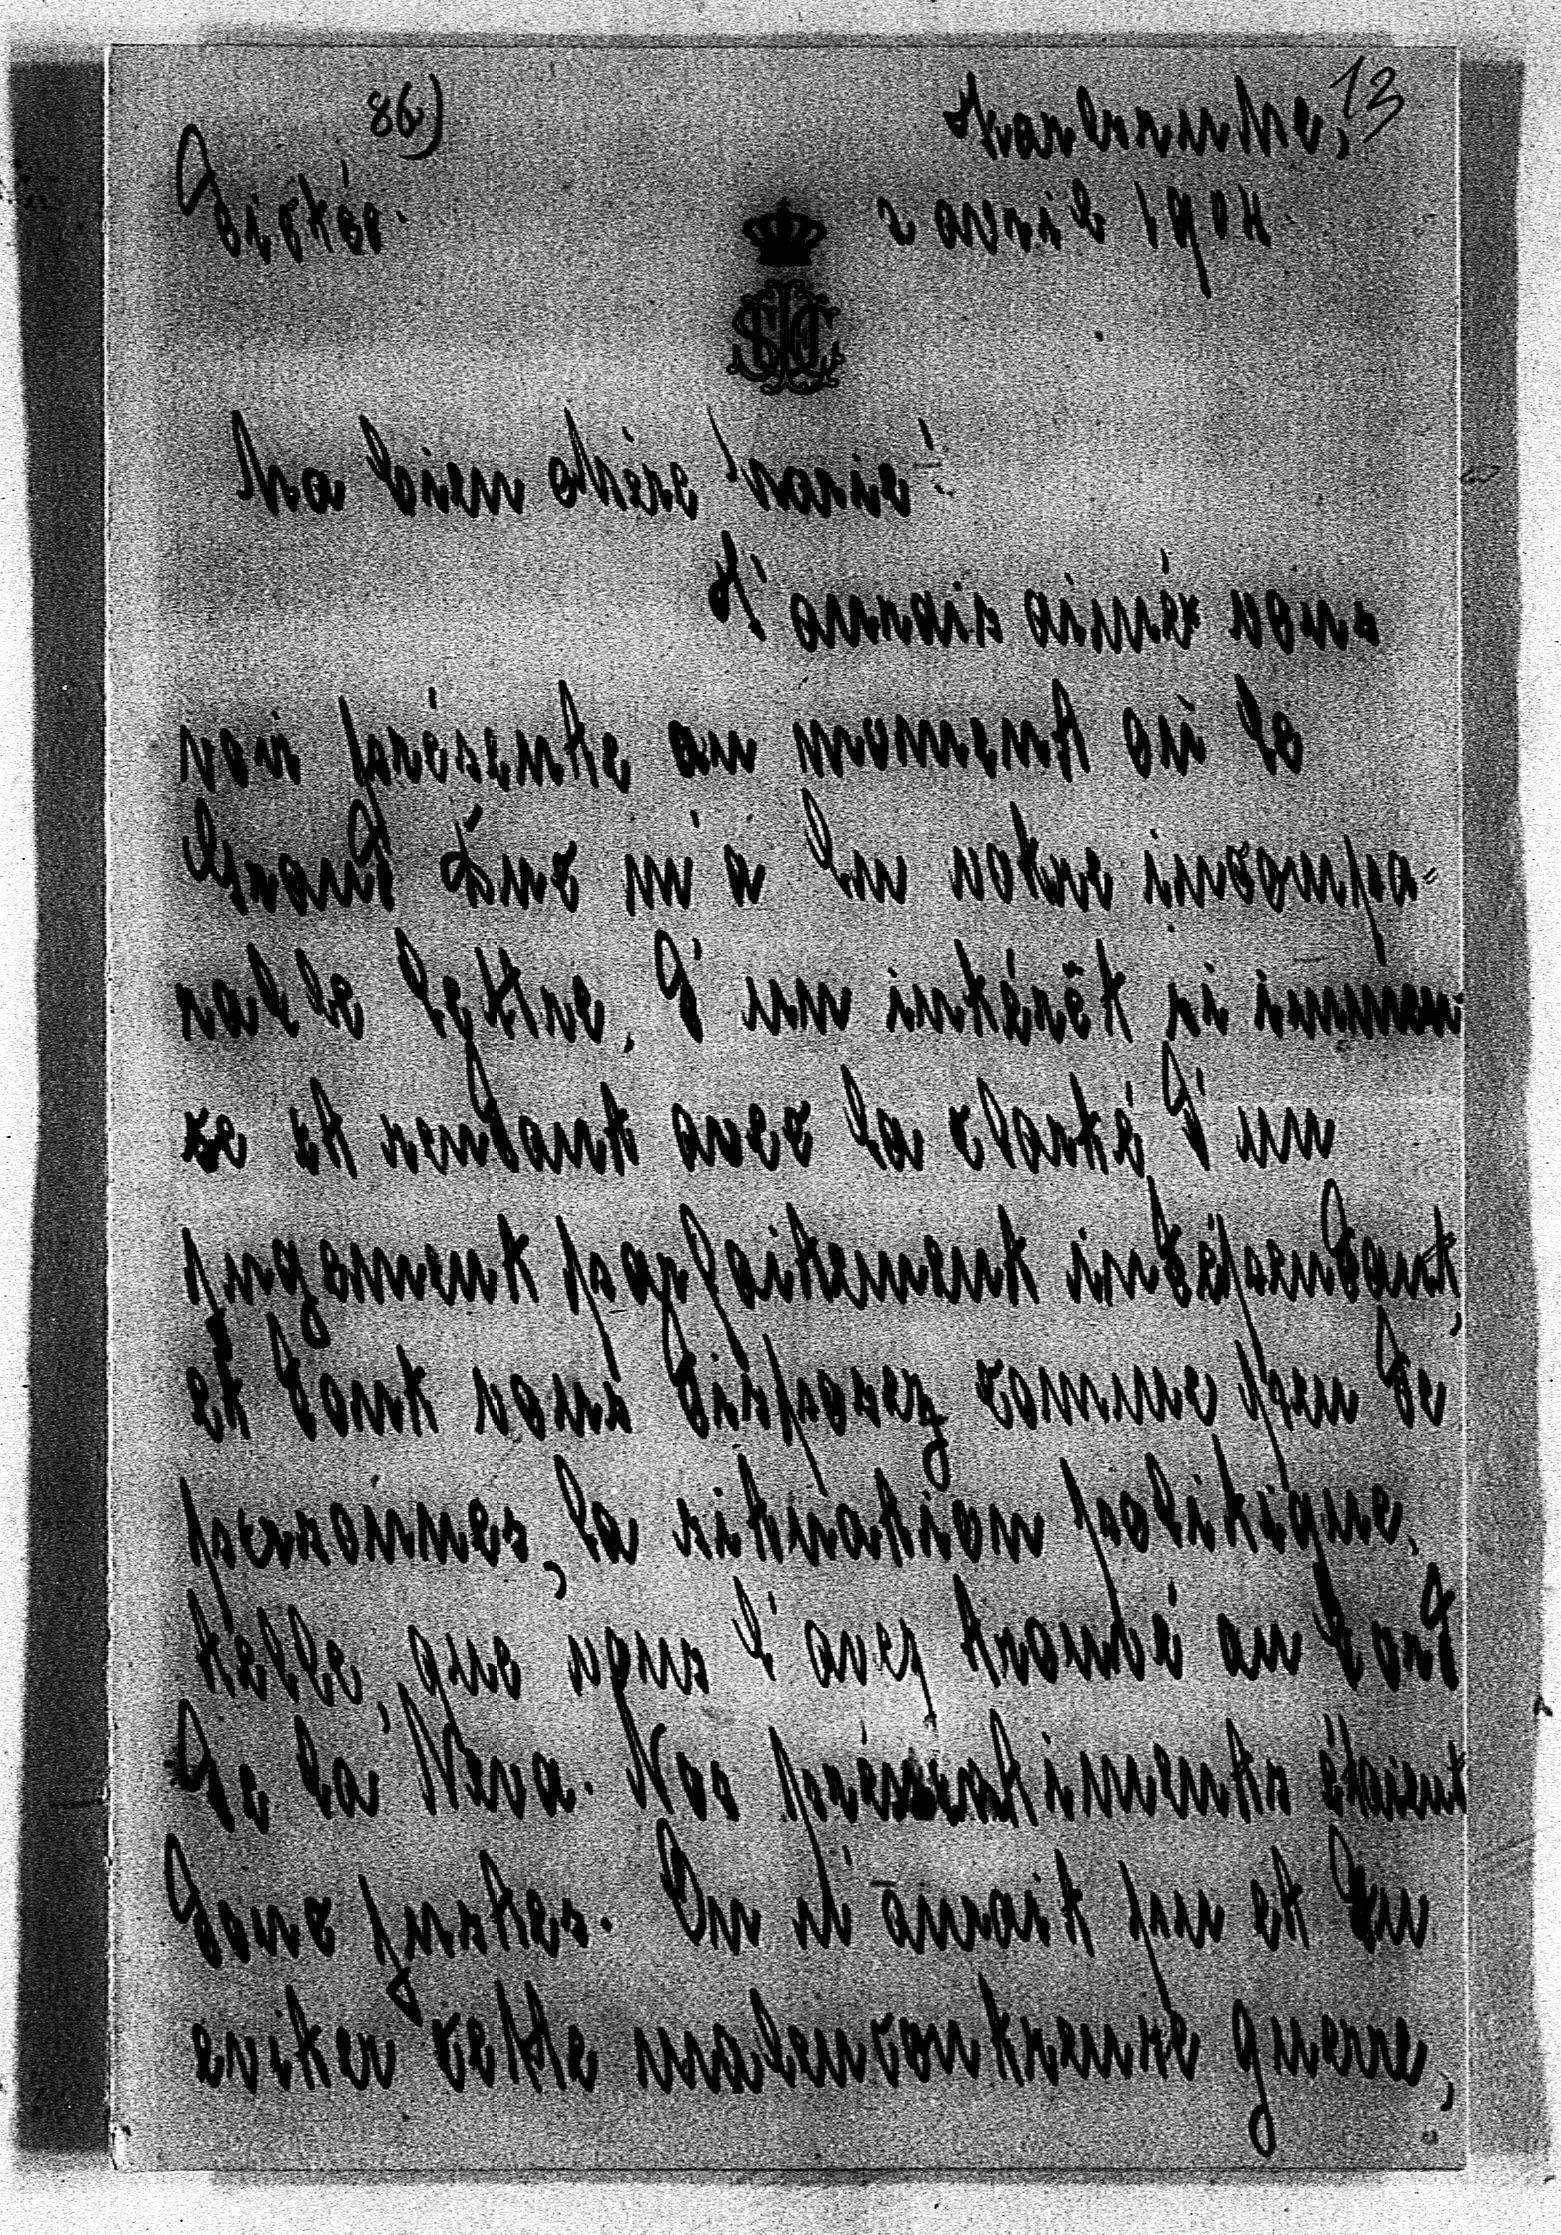 86)
13
Karlsruhe,
2 avril 1904.
Ma bien chère Marie!
J'aurais aimé vous
voir présente au moment où le
Grand Duc m'a lu votre incompa=
rable lettre, d'un intérêt si immen
se et rendant avec la clarté d'un
jugement parfaitement indépendant,
et dont vous disposez comme peu de
personnes, la situation politique,
telle, que vous l'avez trouvé au bord
de la Neva. Nos préssentiments étaient
donc justes. On n'aurait pu et du
eviter cette malencontreuse guerre,